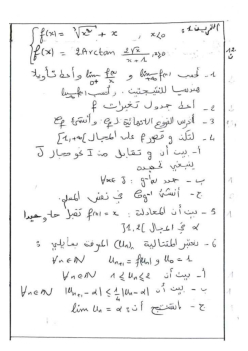 التمرين 1:
f(x) = ∛x² + x , x<0
f(x) = 2Arctan 2√x / x+1 , x≥0
1- احسب lim f(x)/x و lim f(x) وأعط تأويلا
هندسيا للنتيجتين
2- أعط جدول تغيرات f
3- أدرس الفروع اللانهائية لـ f وأنشئ Cf
4- لتكن g قصور f على المجال [1,+∞[
أ- بين أن g تقابل من I نحو مجال J
ينبغي تحديده
ب- حدد ∀x∈J :
ج- أنشئ Cg⁻¹ في نفس المعلم
5- بين أن المعادلة: f(x) = x تقبل حلا وحيدا
α في المجال ]1,2[
6- نعتبر المتتالية (Un) المعرفة بما يلي:
Un+1 = f(Un) و U0 = 1 ∀n∈ℕ
أ- بين أن 1 ≤ Un ≤ 2 ∀n∈ℕ
ب- بين أن |Un+1 - α| ≤ 1/4 |Un - α| ∀n∈ℕ
ج- استنتج أن: lim Un = α